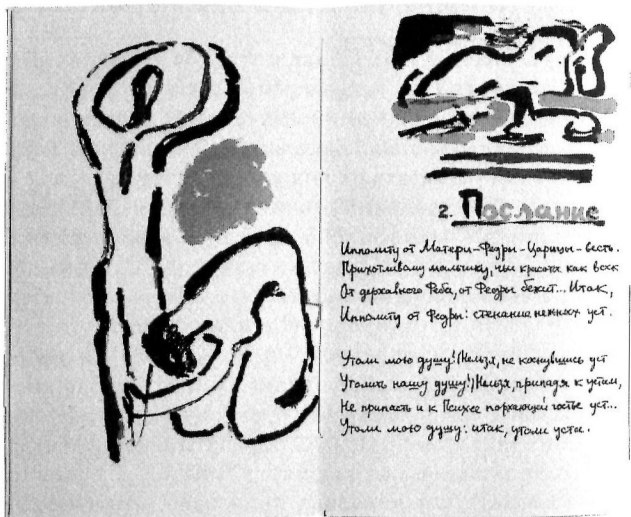 2. Послание
Ипполиту от Матери-Федры-Царицы-весть.
Прихотливому мальчику, чья красота как воск
От державного Феба, от Федры бежит... Итак,
Ипполиту от Федры: стенание нежных уст.
Утоли мою душу! (Нельзя, не коснувшись уст
Утолить нашу душу!) Нельзя, припадя к устам,
Не припасть и к Психее порхающей гостье уст...
Утоли мою душу: итак, утоли уста.